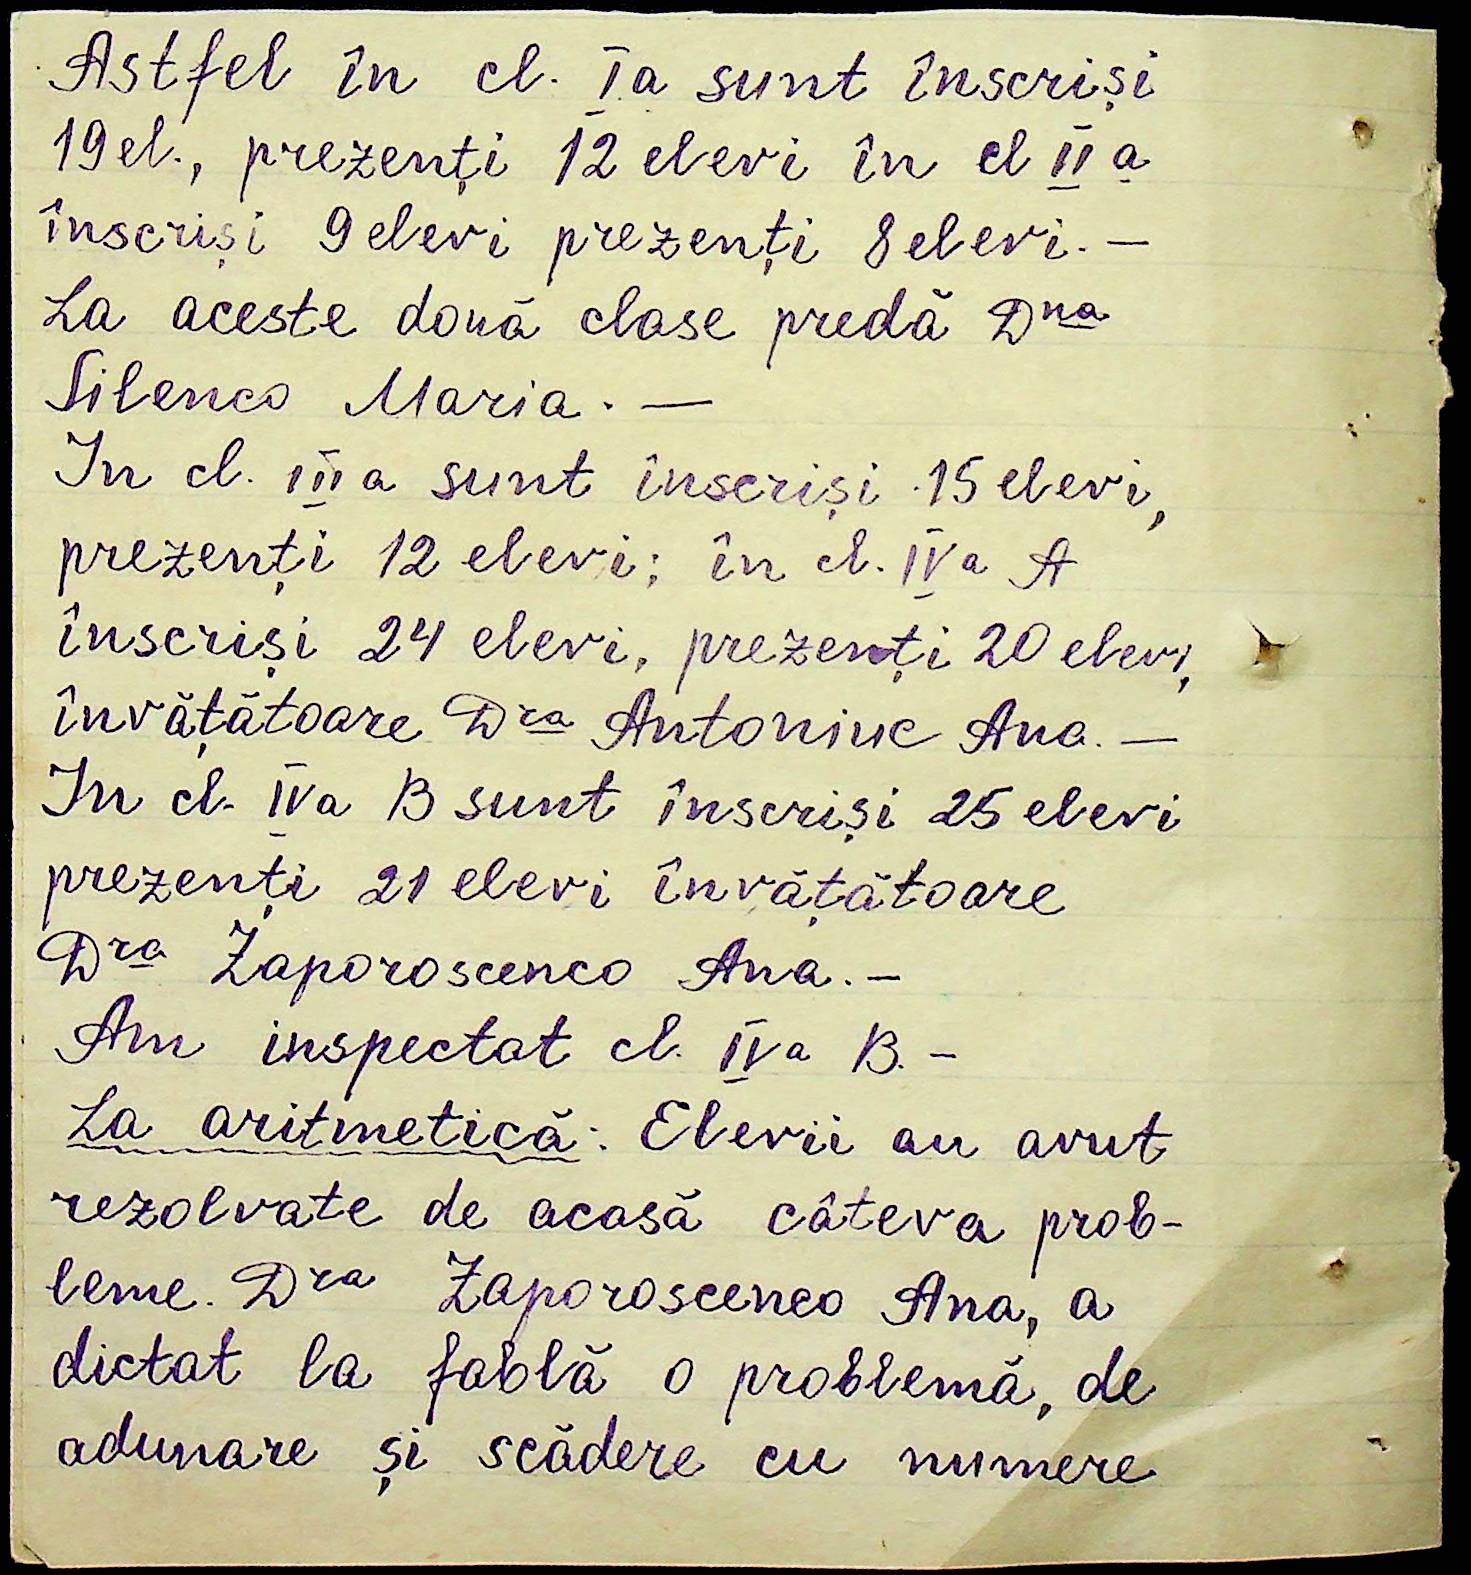 Astfel în cl. I a sunt înscriși
19 el., prezenți 12 elevi în cl II a
înscriși 9 elevi prezenți 8 elevi. —
La aceste două clase predă Dna
Silenco Maria. —
In cl. III a sunt înscriși 15 elevi,
prezenți 12 elevi; în cl. IV a A
înscriși 24 elevi, prezenți 20 elevi,
învățătoare Dra Antoniuc Ana. —
In cl. IV a B sunt înscriși 25 elevi
prezenți 21 elevi învățătoare
Dra Zaporoscenco Ana. —
Am inspectat cl. IV a B. —
La aritmetică: Elevii au avut
rezolvate de acasă câteva prob-
leme. Dra Zaporoscenco Ana, a
dictat la tablă o problemă, de
adunare și scădere cu numere